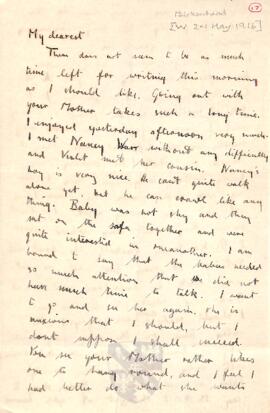 17
Birkenhead
[W. 24 May 1916]
My dearest
There does not seem to be as much
time left for writing this morning
as I should like. Going out with
your Mother takes such a long time.
I enjoyed yesterday afternoon very much.
I met Nancy Warr without any difficulty
and Violet met her cousin. Nancy's
boy is very nice. He can't quite walk
alone yet but he can crawl like any
thing. Baby was not shy and they
sat on the sofa together and were
quite interested in oneanother. I am
bound to say that the babies needed
so much attention that we did not
have much time to talk. I want
to go and see her again. She is
anxious that I should, but I
don't suppose I shall succeed.
You see your Mother rather likes
one to hang round, and I feel I
had better do what she wants